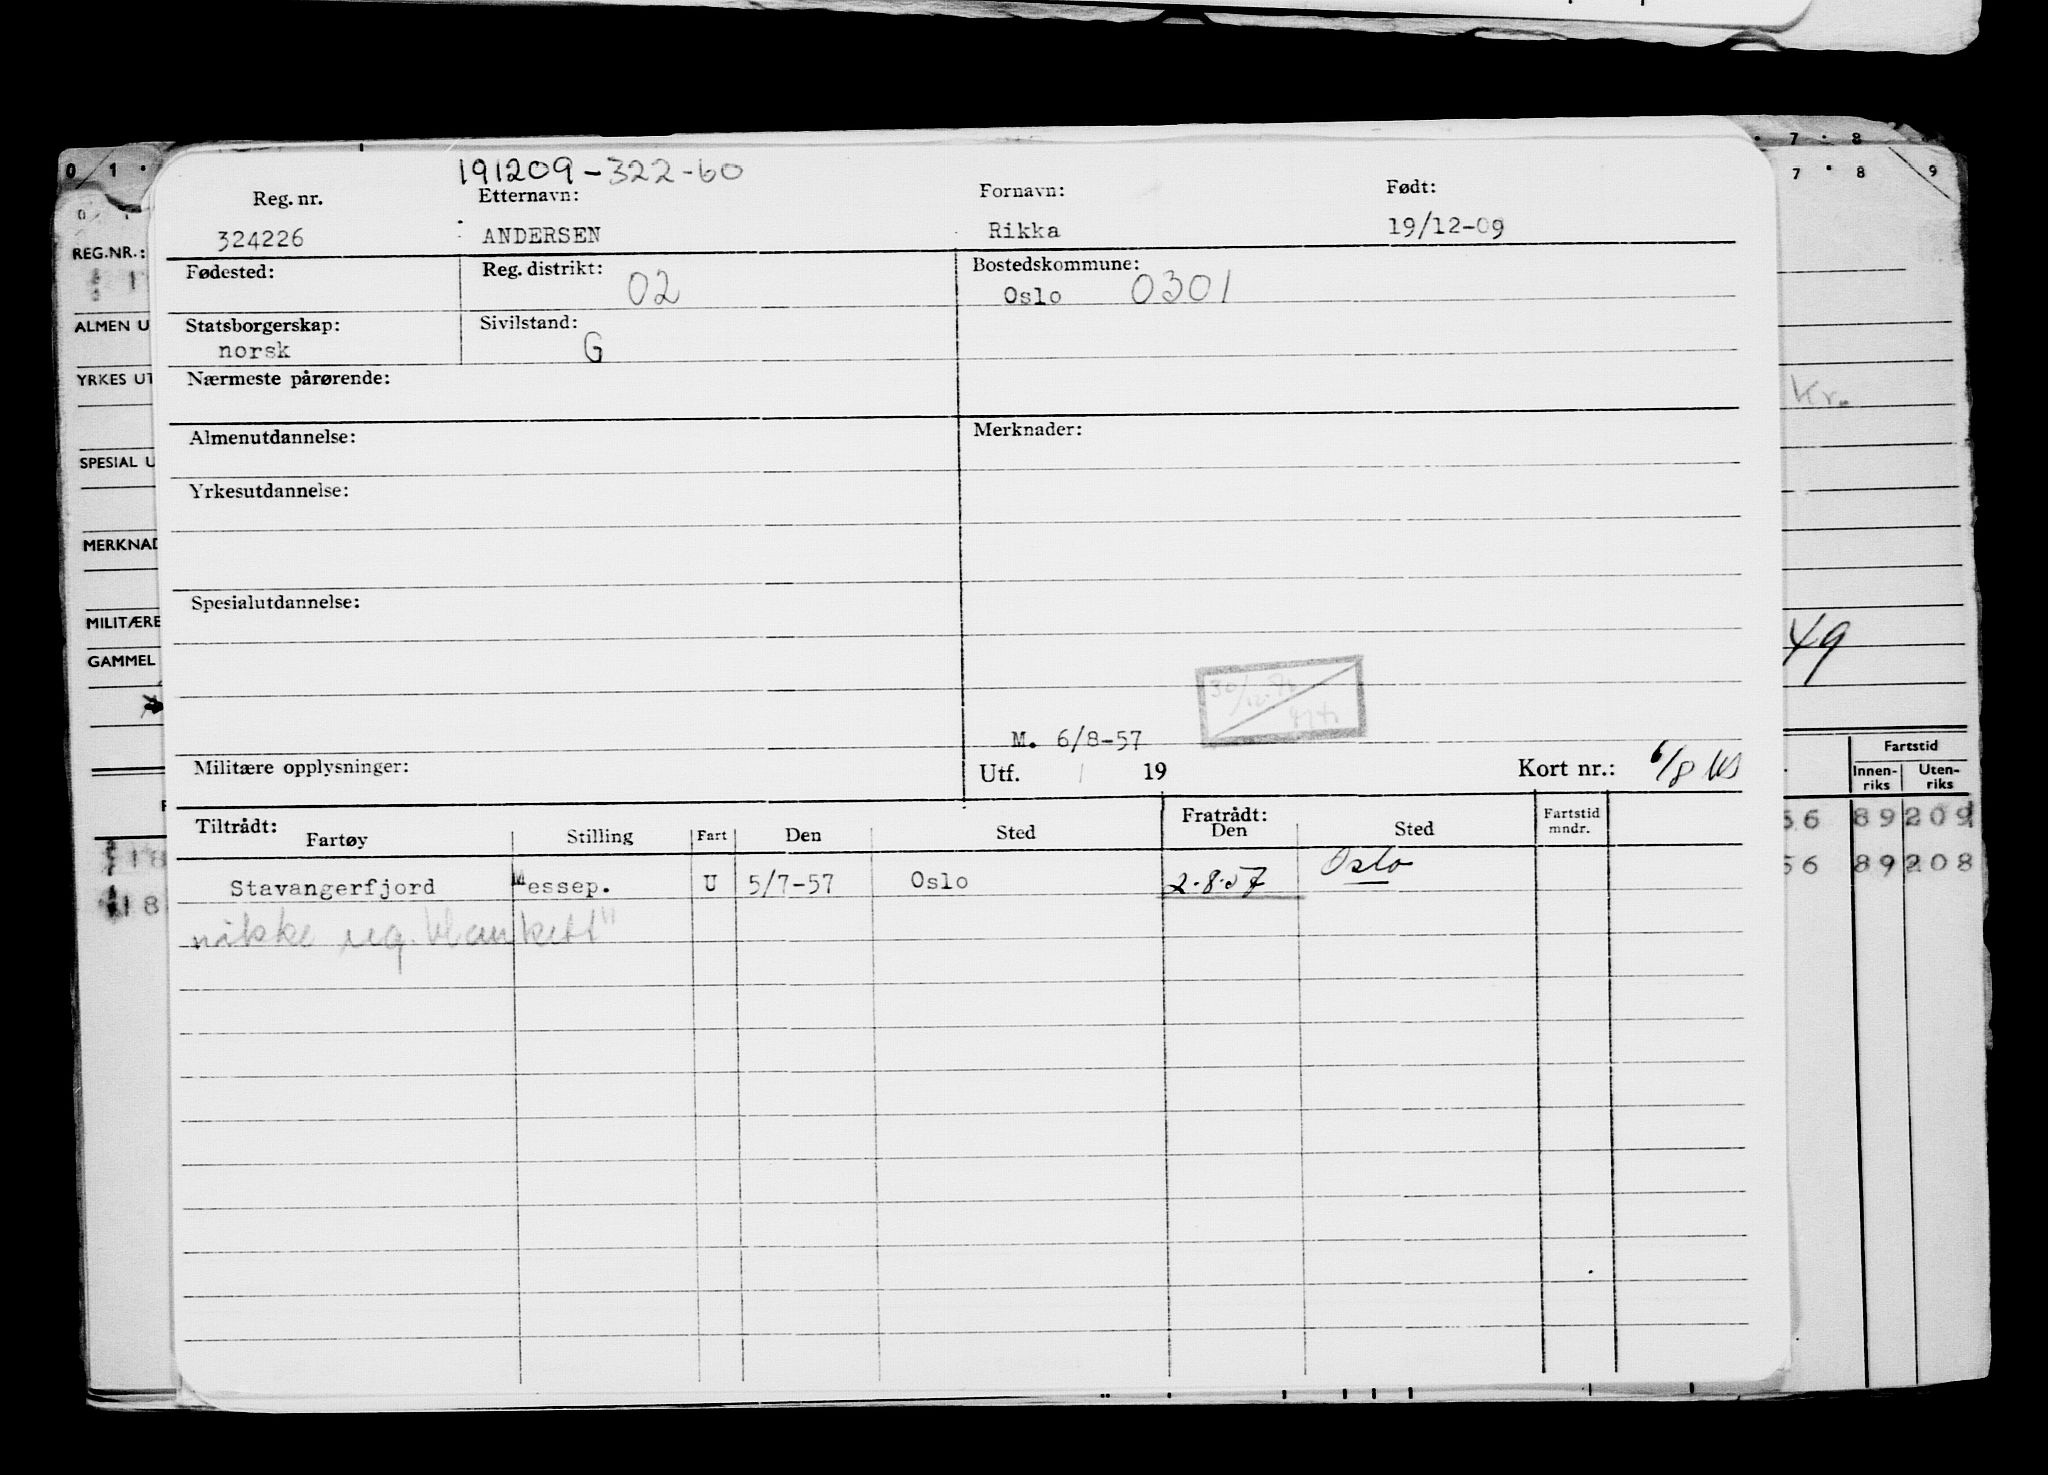 191209-322-60
Reg. nr. Etternavn: Fornavn: Født:
324226 ANDERSEN Rikka 19/12-09
Fødested: Reg. distrikt: 02 Bostedskommune:
Oslo 0301
Statsborgerskap: Sivilstand:
norsk G
Nærmeste pårørende:
Almenutdannelse: Merknader:
Yrkesutdannelse:
Spesialutdannelse:
M. 6/8-57
Militære opplysninger: Utf. / 19 Kort nr.: 6/8
Tiltrådt: Fratrådt: Fartstid
Fartøy Stilling Fart Den Sted Den Sted mndr.
Stavangerfjord Messep. U 5/7-57 Oslo 2.8.57 Oslo
ikke reg. blankett"
0 1 . 7 . 8
7 . 8 9
REG.NR.:
ALMEN U
YRKES UT
Kr.
SPESIAL U
MERKNAD
MILITÆRE
49
GAMMEL
Fartstid
Innen- Uten-
riks riks
56 89 209
56 89 208
18
18